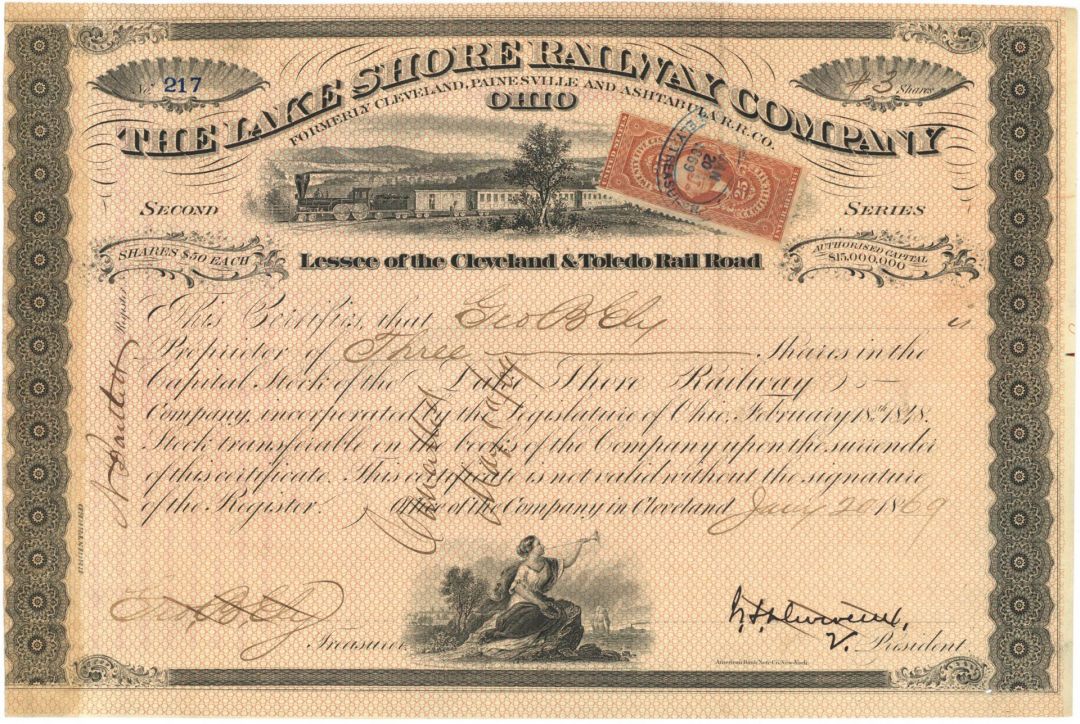 No. 217
# 3 Shares
THE LAKE SHORE RAILWAY COMPANY
FORMERLY CLEVELAND, PAINESVILLE AND ASHTABULA R.R. CO.
OHIO
SECOND SERIES
UNITED STATES
25
20
1869
SHARES $50 EACH
AUTHORISED CAPITAL $15,000,000
Lessee of the Cleveland & Toledo Rail Road
This Certifies, that Geo B Ely is
Proprietor of Three Shares in the
Capital Stock of the Lake Shore Railway
Company, incorporated by the Legislature of Ohio, February 18th 1848.
Stock transferable on the books of the Company upon the surrender
of this certificate. This certificate is not valid without the signature
of the Register. Office of the Company in Cleveland Jany 20 1869
Register
REGISTERED
Cancelled
Geo B. Ely
Treasurer
V. President
American Bank Note Co. New-York.